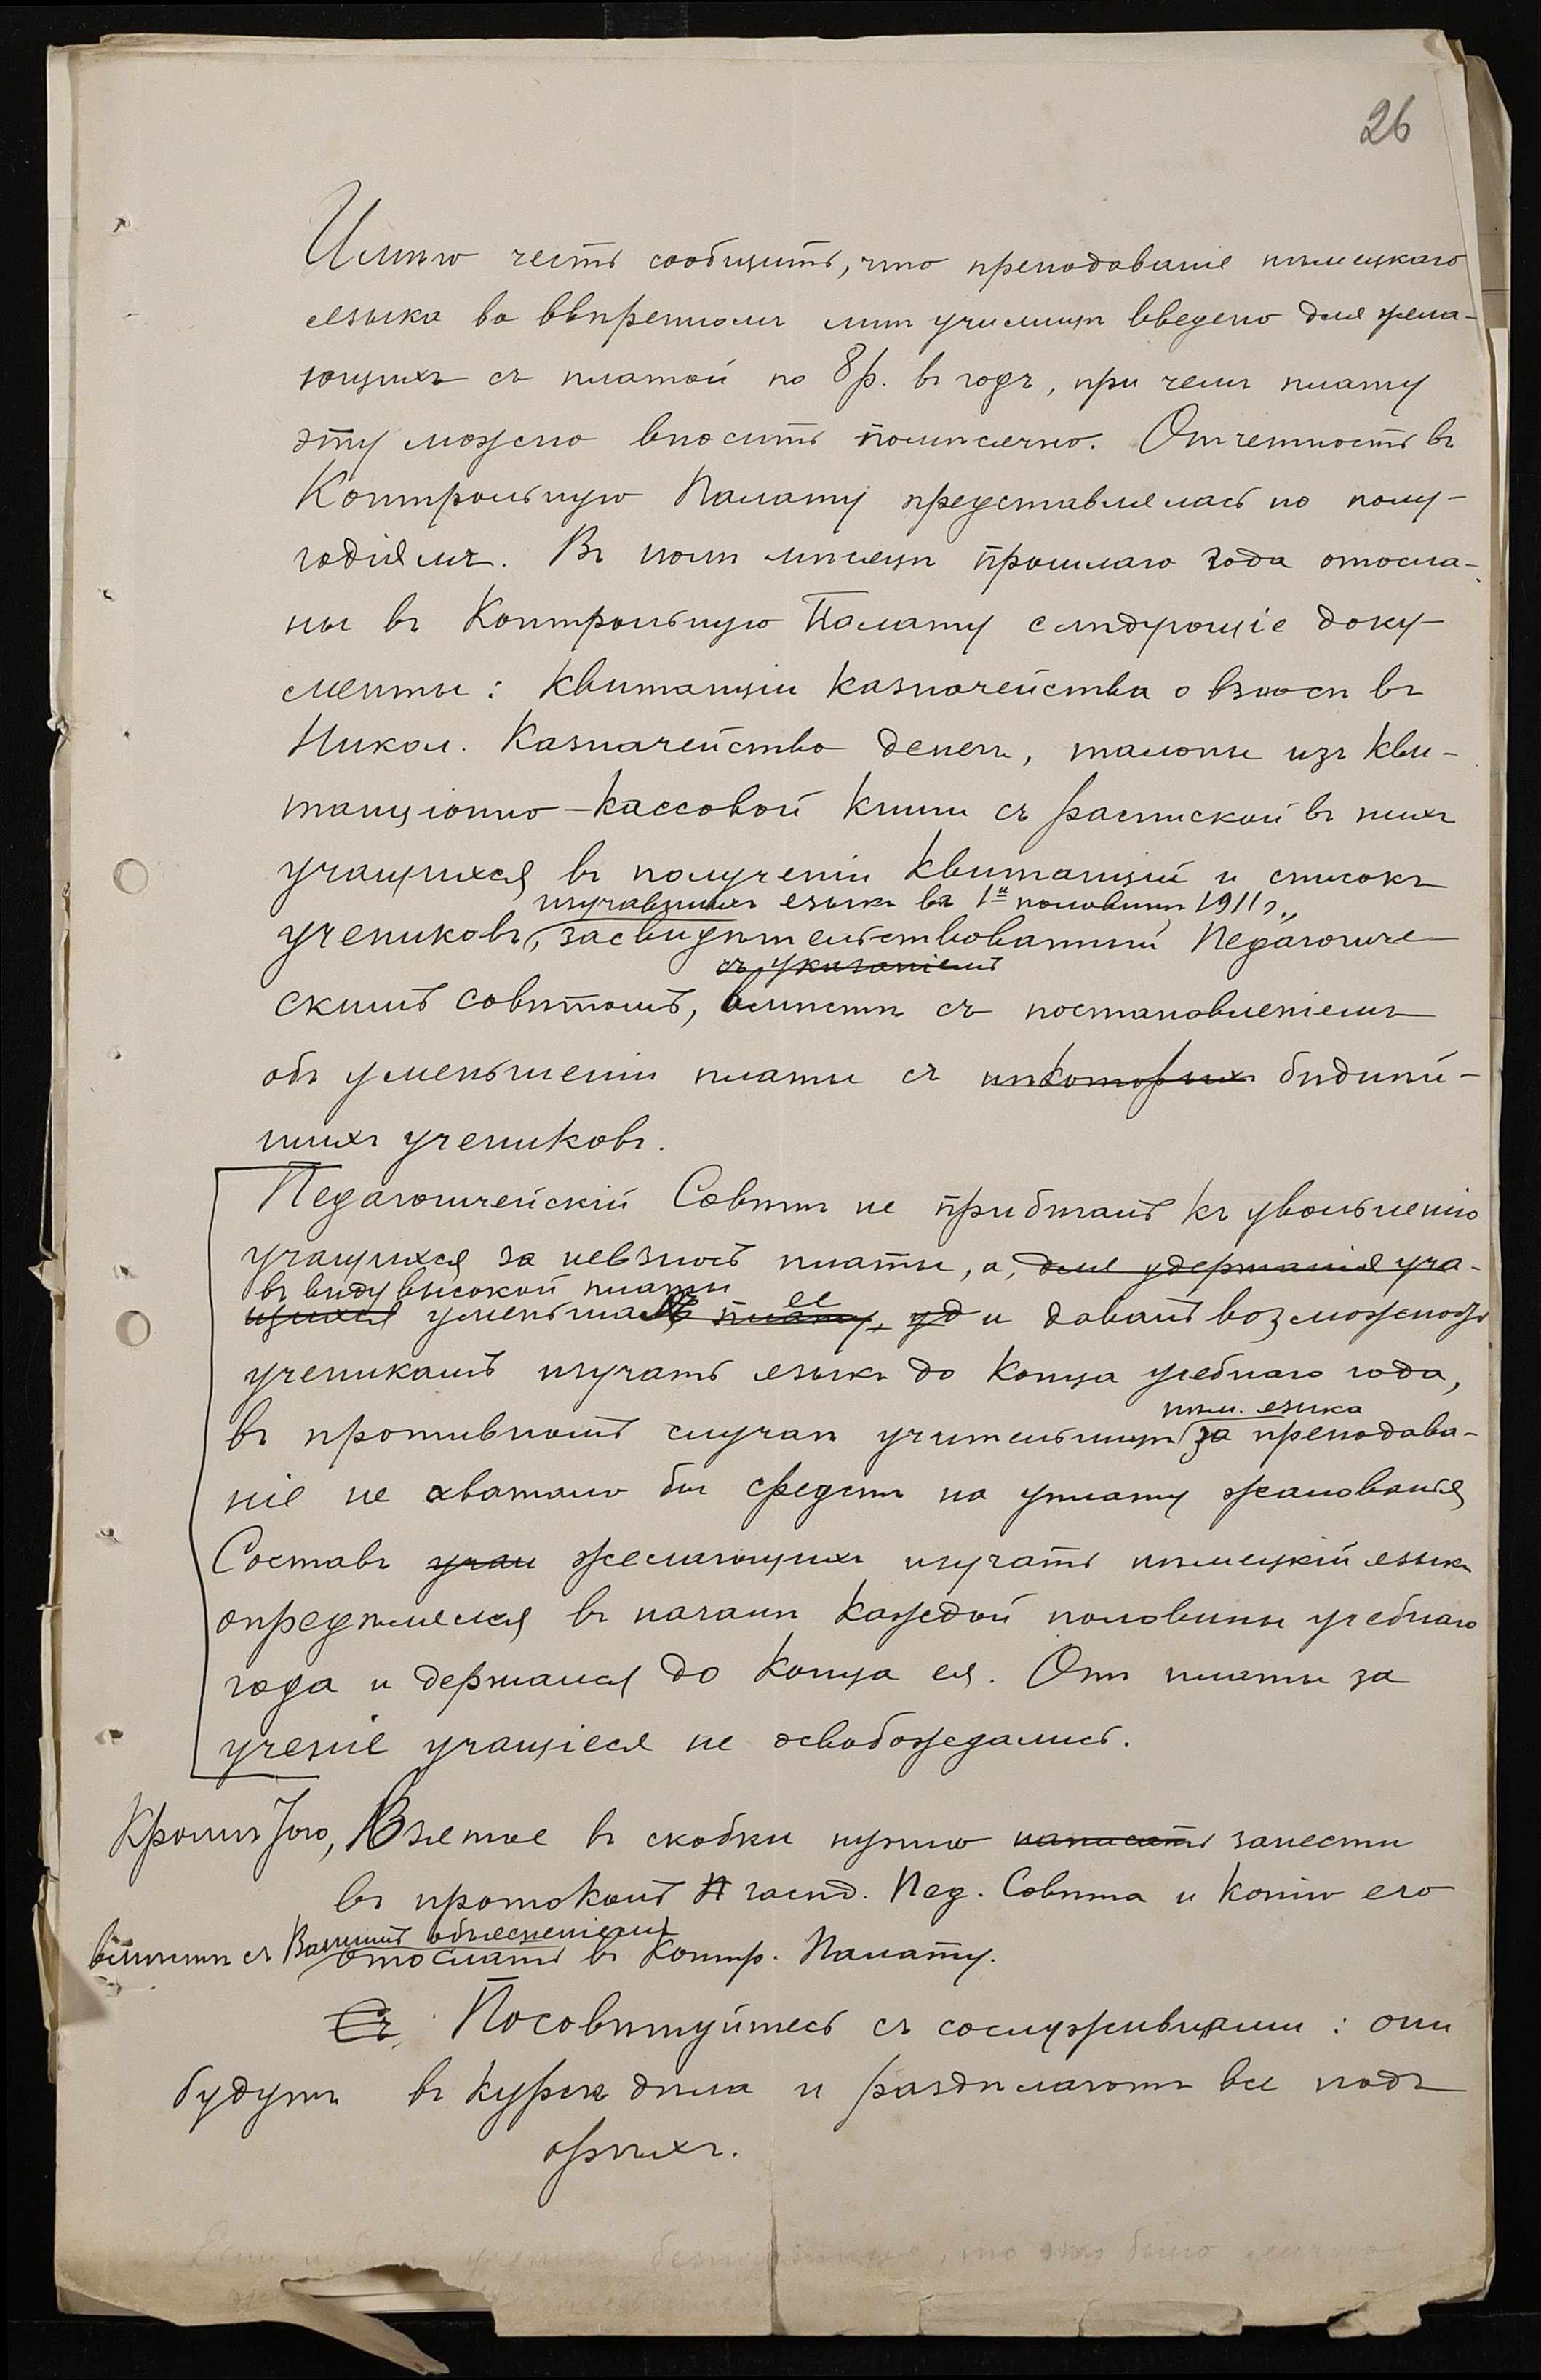 26
Имѣю честь сообщить, что преподаваніе нѣмецкаго
языка во ввѣренномъ мнѣ училищѣ введено для жела-
ющихъ съ платой по 8 р. въ годъ, при чемъ плату
эту можно вносить помѣсячно. Отчетность въ
Контрольную Палату представлялась по полу-
годіямъ. Въ мѣсяцѣ прошлаго года отосла-
ны въ Контрольную Палату слѣдующіе доку-
менты: квитанціи казначейства о взносѣ въ
Никол. Казначейство денегъ, талоны изъ кви-
танціонно-кассовой книги съ распиской въ нихъ
учащихся въ полученіи квитанцій и списокъ
изучавшихъ языкъ въ 1й половинѣ 1911 г.,
учениковъ, засвидѣтельствованный Педагогиче-
съ указаніемъ
скимъ совѣтомъ, вмѣстѣ съ постановленіемъ
объ уменьшеніи платы съ нѣкоторыхъ бѣднѣй-
шихъ учениковъ.
Педагогическій Совѣтъ не прибѣгалъ къ увольненію
учащихся за невзносъ платы, а, для удержанія уча-
въ виду высокой платы ее
щихся уменьшалъ плату, уд и давалъ возможность
ученикамъ изучать языкъ до конца учебнаго года,
нѣм. языка
въ противномъ случаѣ учительницѣ за преподава-
ніе не хватало бы средствъ на уплату жалованья
Составъ учащ желающихъ изучать нѣмецкій языкъ
опредѣлялся въ началѣ каждой половины учебнаго
года и держался до конца ея. Отъ платы за
ученіе учащіеся не освобождались.
Кромѣ того, Взятое въ скобки нужно написать занести
въ протоколъ засѣд. Пед. Совѣта и копію его
вмѣстѣ съ Вашимъ объясненіемъ
отослать въ Контр. Палату.
Съ Посовѣтуйтесь съ сослуживцами: они
будутъ въ курсѣ дѣла и раздѣлаютъ все подъ
орѣхъ.